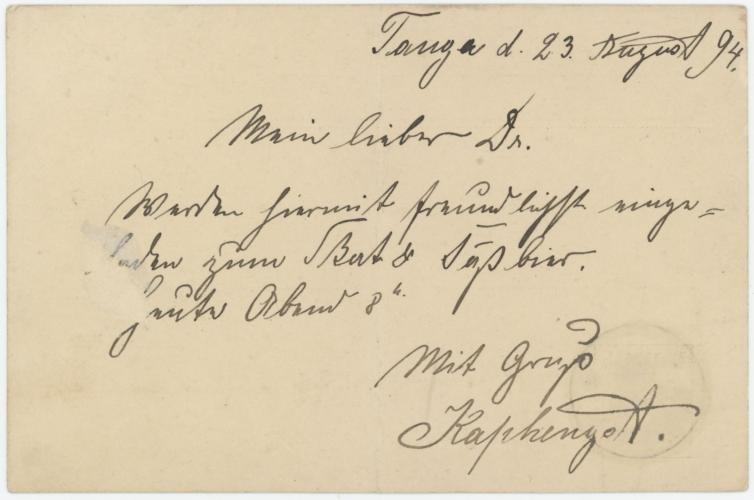 Tanga d. 23. August 94.
Mein lieber Dr.
Werden hiermit freundlichst einge=
laden zum Skat & Faßbier.
heute Abend 8 u.
Mit Gruß
Kaphengst.